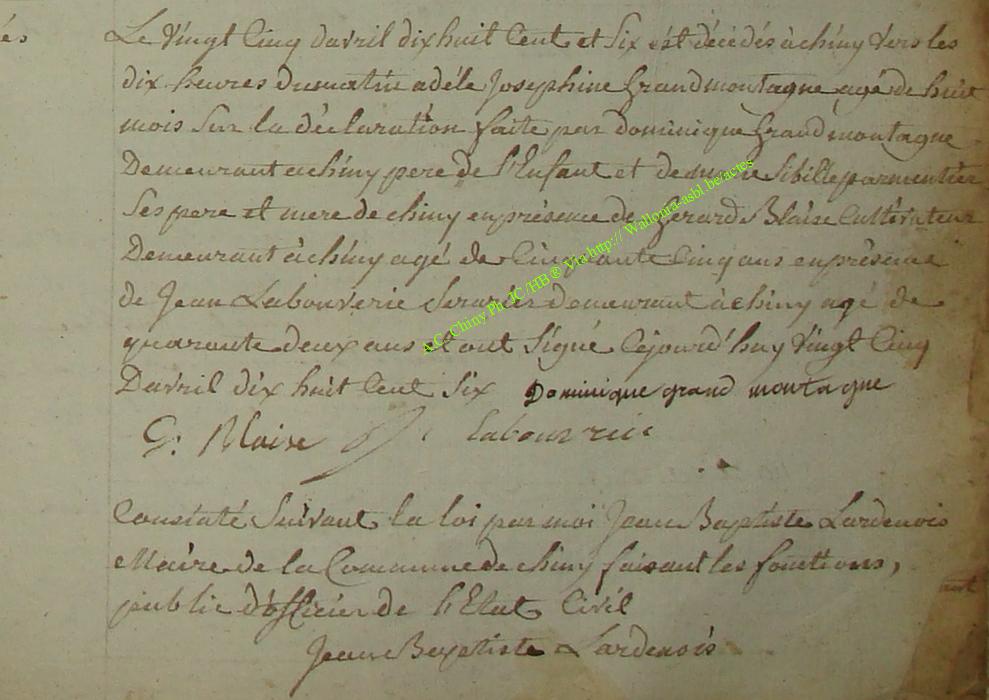 Le Vingt Cinq davril dix huit Cent et Six est décédés à chiny Vers les
dix heures dumatin adéle Josephine Grandmontagne agé de huit
mois Sur la déclaration faite par dominique Grandmontagne
Demeurant a chiny pere de l'Enfant et de Sibille parmentier
Ses pere et mere de chiny en présence de Gerard Blaise Cultivateur
Demeurant à chiny agé de Cinquante Cinq ans en présence
de Jean Labouverie demeurant à chiny agé de
quarante deux ans et ont Signé Cejourd'huy Vingt Cinq
Davril dix huit Cent Six Dominique grand montagne
G: Blaise J labouverie
Constaté Suivant la loi par moi Jean Baptiste Lardenois
Maire de la Commune de chiny faisant les fonctions,
public d'officier de l'Etat Civil
Jean Baptiste Lardenois
A.C. Chiny Ph. JC /HB ® Via http:// Wallonia-asbl.be/actes